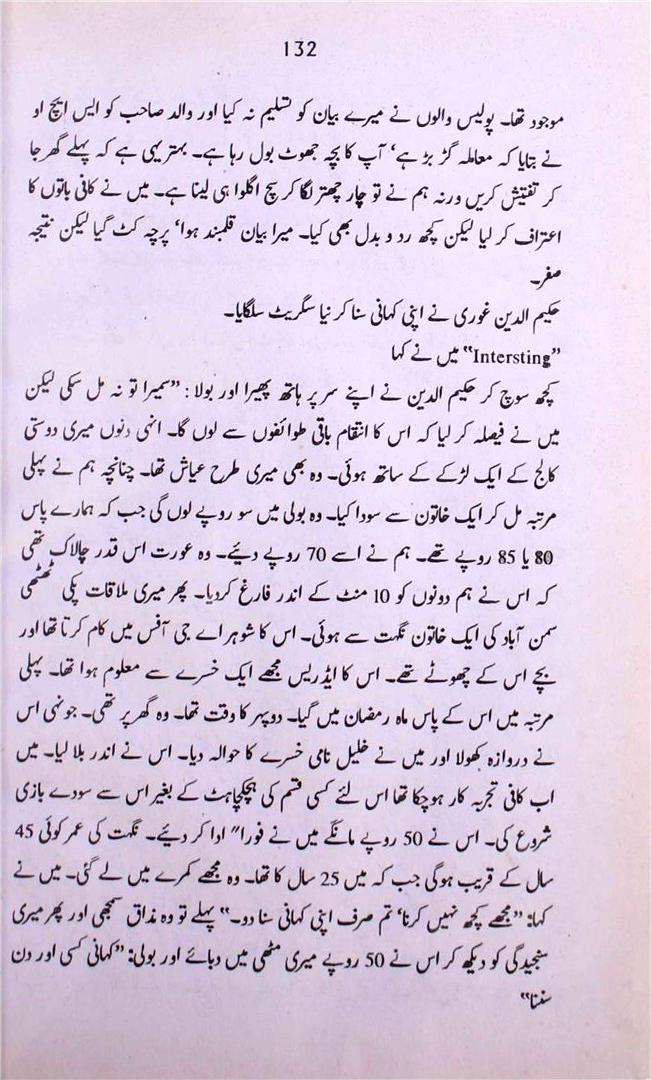 132
موجود تھا۔ پولیس والوں نے میرے بیان کو تسلیم نہ کیا اور والد صاحب کو ایس ایچ او
نے بتایا کہ معاملہ گڑ بڑ ہے‘ آپ کا بچہ جھوٹ بول رہا ہے۔ بہتر یہی ہے کہ پہلے گھر جا
کر تفتیش کریں ورنہ ہم نے تو چار چھتر لگا کر سچ اگلوا ہی لینا ہے۔ میں نے کافی باتوں کا
اعتراف کر لیا لیکن کچھ رد و بدل بھی کیا۔ میرا بیان قلمبند ہوا‘ پرچہ کٹ گیا لیکن نتیجہ
صفر۔
حکیم الدین غوری نے اپنی کہانی سنا کر نیا سگریٹ سلگایا۔
”Intersting“ میں نے کہا
کچھ سوچ کر حکیم الدین نے اپنے سر پر ہاتھ پھیرا اور بولا : ”سمیرا تو نہ مل سکی لیکن
میں نے فیصلہ کر لیا کہ اس کا انتقام باقی طوائفوں سے لوں گا۔ انہی دنوں میری دوستی
کالج کے ایک لڑکے کے ساتھ ہوئی۔ وہ بھی میری طرح عیاش تھا۔ چنانچہ ہم نے پہلی
مرتبہ مل کر ایک خاتون سے سودا کیا۔ وہ بولی میں سو روپے لوں گی جب کہ ہمارے پاس
80 یا 85 روپے تھے۔ ہم نے اسے 70 روپے دیئے۔ وہ عورت اس قدر چالاک تھی
کہ اس نے ہم دونوں کو 10 منٹ کے اندر فارغ کردیا۔ پھر میری ملاقات پکی ٹھٹھی
سمن آباد کی ایک خاتون نگہت سے ہوئی۔ اس کا شوہر اے جی آفس میں کام کرتا تھا اور
بچے اس کے چھوٹے تھے۔ اس کا ایڈریس مجھے ایک خسرے سے معلوم ہوا تھا۔ پہلی
مرتبہ میں اس کے پاس ماہ رمضان میں گیا۔ دوپہر کا وقت تھا۔ وہ گھر پر تھی۔ جونہی اس
نے دروازہ کھولا اور میں نے خلیل نامی خسرے کا حوالہ دیا۔ اس نے اندر بلا لیا۔ میں
اب کافی تجربہ کار ہوچکا تھا اس لئے کسی قسم کی ہچکچاہٹ کے بغیر اس سے سودے بازی
شروع کی۔ اس نے 50 روپے مانگے میں نے فورا” ادا کر دیئے۔ نگہت کی عمر کوئی 45
سال کے قریب ہوگی جب کہ میں 25 سال کا تھا۔ وہ مجھے کمرے میں لے گئی۔ میں نے
کہا: ”مجھے کچھ نہیں کرنا‘ تم صرف اپنی کہانی سنا دو۔“ پہلے تو وہ مذاق سمجھی اور پھر میری
سنجیدگی کو دیکھ کر اس نے 50 روپے میری مٹھی میں دبائے اور بولی: ”کہانی کسی اور دن
سننا“